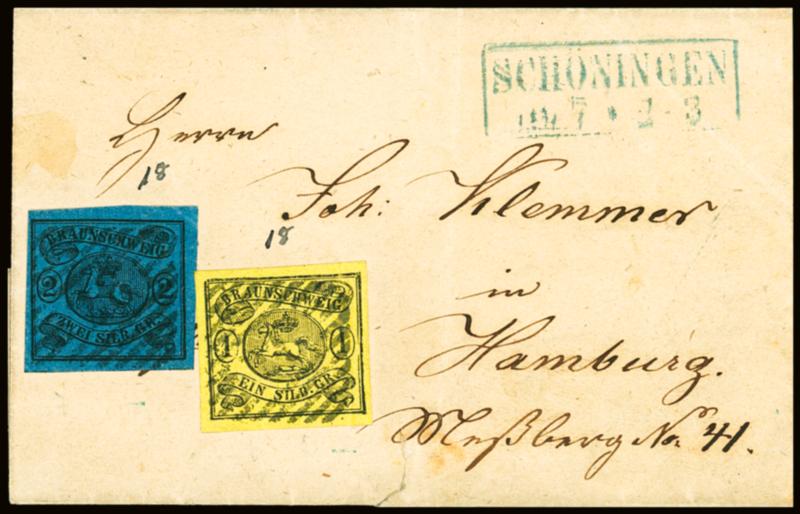 SCHÖNINGEN
7 * 2-3
Herrn
18
Joh: Klemmer
18
in
Hamburg.
Meßberg No: 41.
BRAUNSCHWEIG
2 2
ZWEI SILB. GR.
BRAUNSCHWEIG
1 1
EIN SILB. GR.